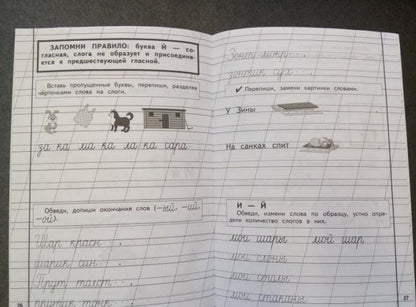 ЗАПОМНИ ПРАВИЛО: буква Й — со-
гласная, слога не образует и присоединя-
ется к предшествующей гласной.
Вставь пропущенные буквы, перепиши, разделяя
чёрточками слова на слоги.
за ка ма ка ла ка сара
Обведи, допиши окончания слов (-ый, -ий,
-ой).
Шар красн
шарик син
Прут толст
прутик тонк
26
Зонт мокр
зонтик сух
✓ Перепиши, замени картинки словами.
У Зины
На санках спит
И — Й
Обведи, измени слова по образцу, устно опре-
дели количество слогов в них.
мои шары мой шар
мои слоны
мои столы
мои стаканы
27